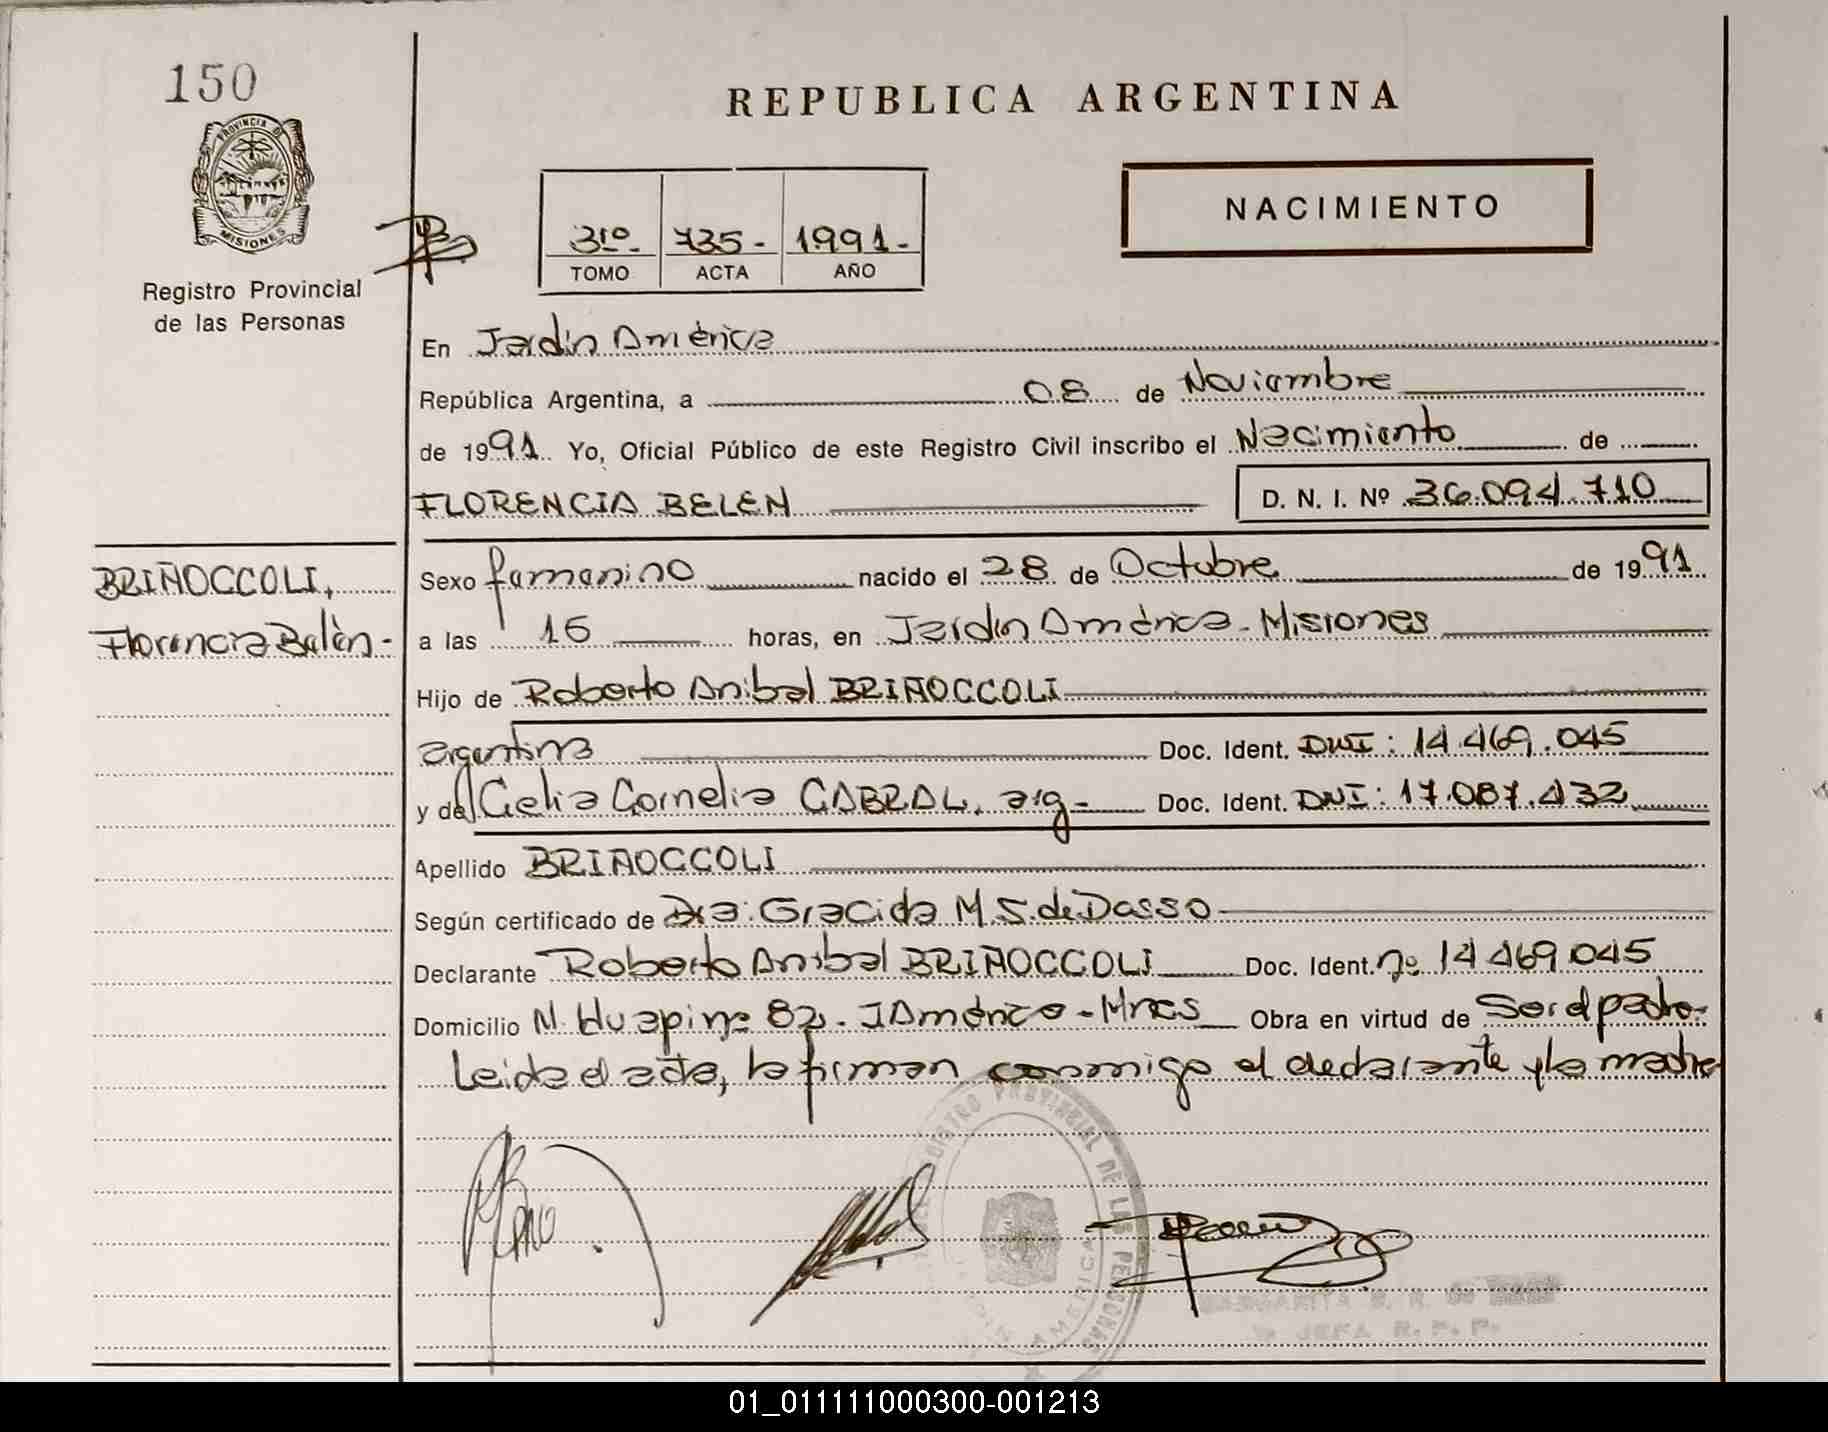 150
PROVINCIA DE
MISIONES
Registro Provincial
de las Personas
REPUBLICA ARGENTINA
3ro- 735- 1991-
TOMO ACTA AÑO
NACIMIENTO
En Jardín América
República Argentina, a 08 de Noviembre
de 1991. Yo, Oficial Público de este Registro Civil inscribo el Nacimiento de
FLORENCIA BELEN D. N. I. Nº 36.094.710
BRIÑOCCOLI,
Florencia Belén-
Sexo femenino nacido el 28 de Octubre de 1991
a las 16 horas, en Jardín América-Misiones
Hijo de Roberto Anibal BRIÑOCCOLI
argentina Doc. Ident. DNI: 14.469.045
y de Celia Cornelia CABRAL, arg- Doc. Ident. DNI: 17.087.432
Apellido BRIÑOCCOLI
Según certificado de Dra: Graciela M.S. de Dasso
Declarante Roberto Anibal BRIÑOCCOLI Doc. Ident. nº 14.469.045
Domicilio N. Huapi nº 82- J América-Mnes Obra en virtud de Ser el padre-
Leida el acta, la firman conmigo el declarante y la madre
REGISTRO PROVINCIAL DE LAS PERSONAS
JARDIN AMERICA
MARGARITA
JEFA R. P. P.
01_011111000300-001213